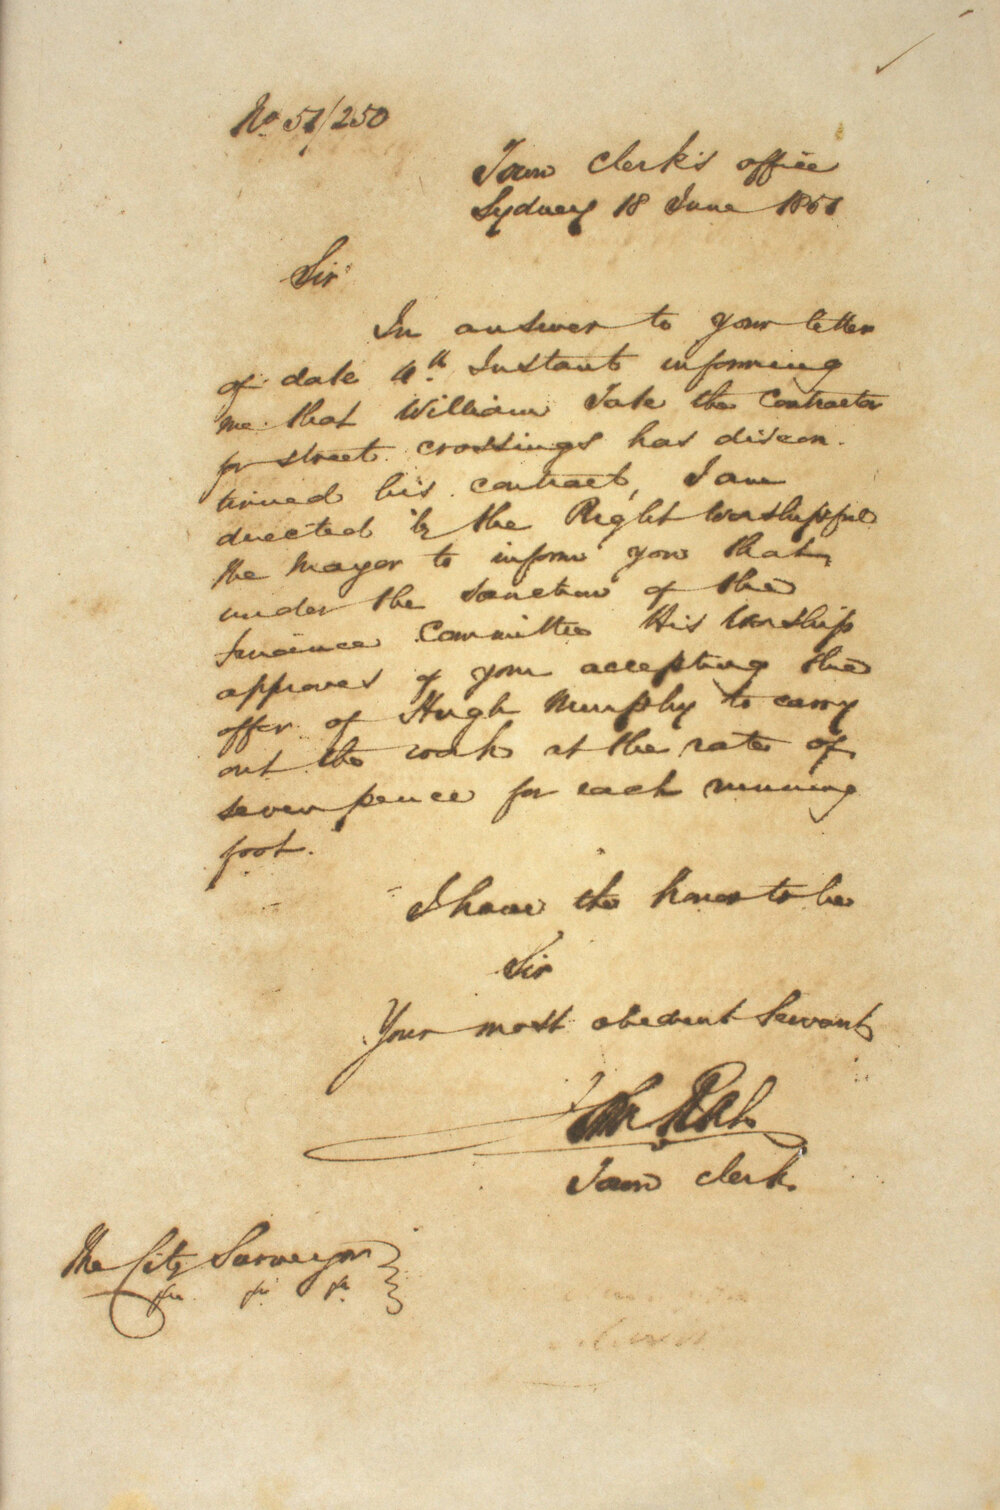 No 51/250
Town Clerk's office
Sydney 18 June 1851
Sir
In answer to your letter
of date 4th Instant informing
me that William Tate the Contractor
for street crossings has discon
tinued his contract, I am
directed by the Right Worshipful
the Mayor to inform you that
under the sanction of the
Finance Committee His Worship
approves of your accepting the
offer of Hugh Murphy to carry
out the work at the rate of
seven pence for each running
foot.
I have the honor to be
Sir
Your most obedient Servant
John Rae
Town Clerk.
The City Surveyor